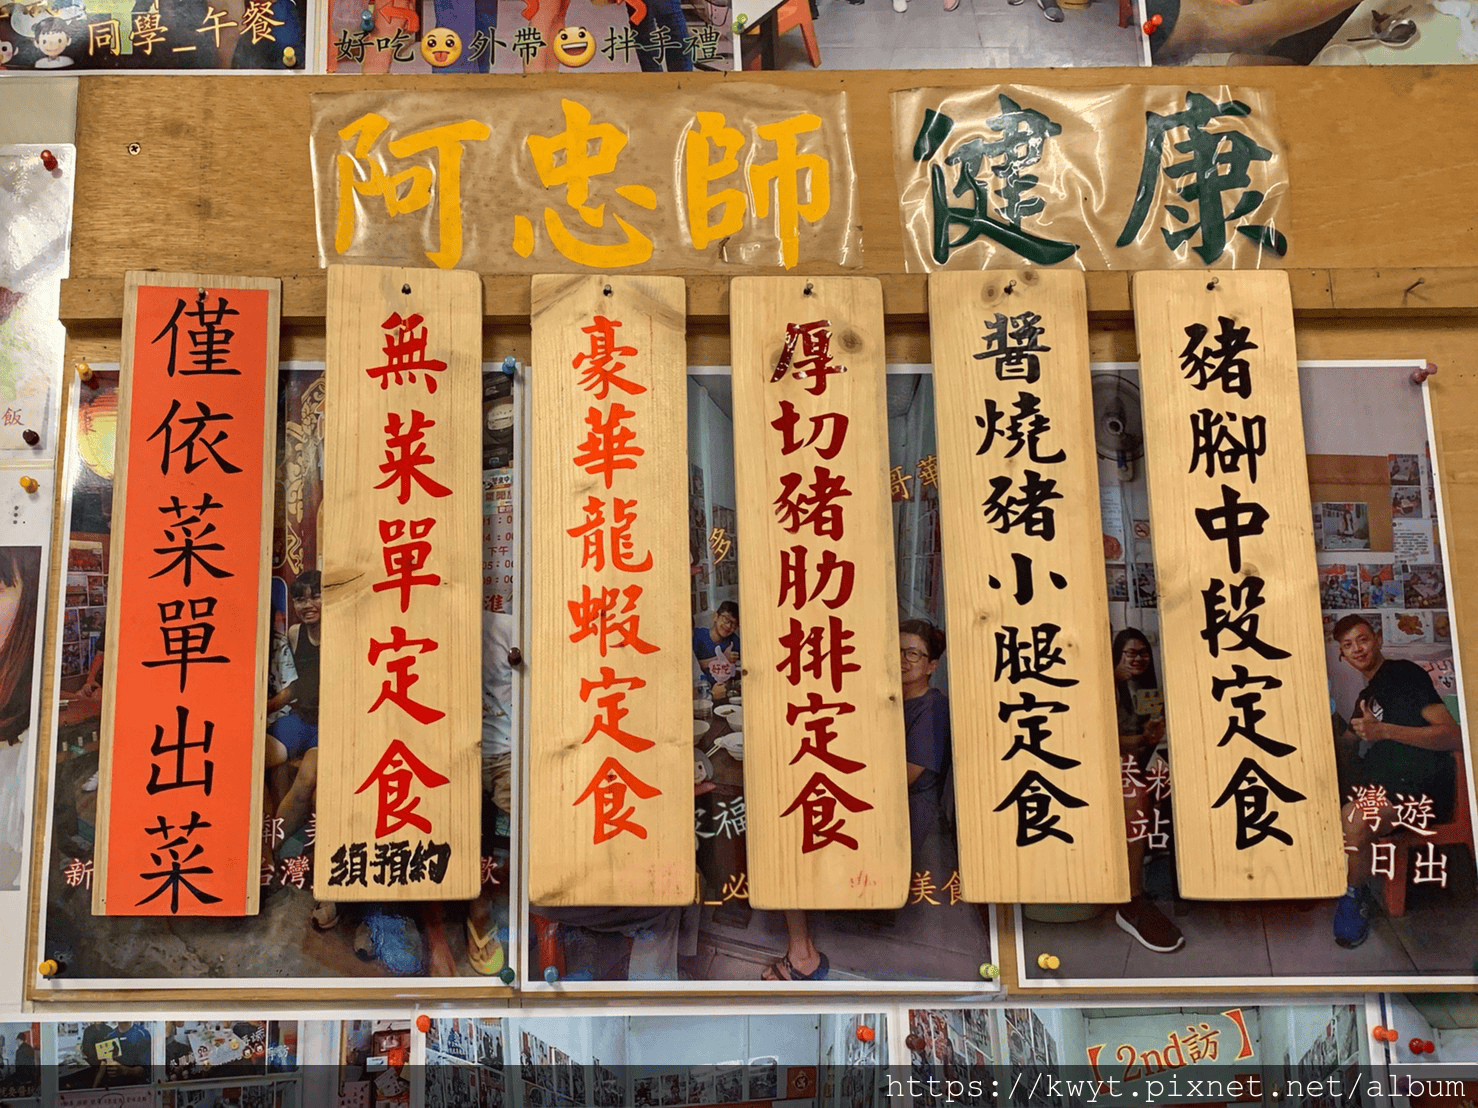 同學_午餐
好吃😜外帶😃拌手禮
阿忠師 健康
豬腳中段定食
醬燒豬小腿定食
厚切豬肋排定食
豪華龍蝦定食
無菜單定食
須預約
僅依菜單出菜
飯
哥華
多
灣遊
日出
站
新
台灣
歡
美食
【2nd訪】
https://kwyt.pixnet.net/album